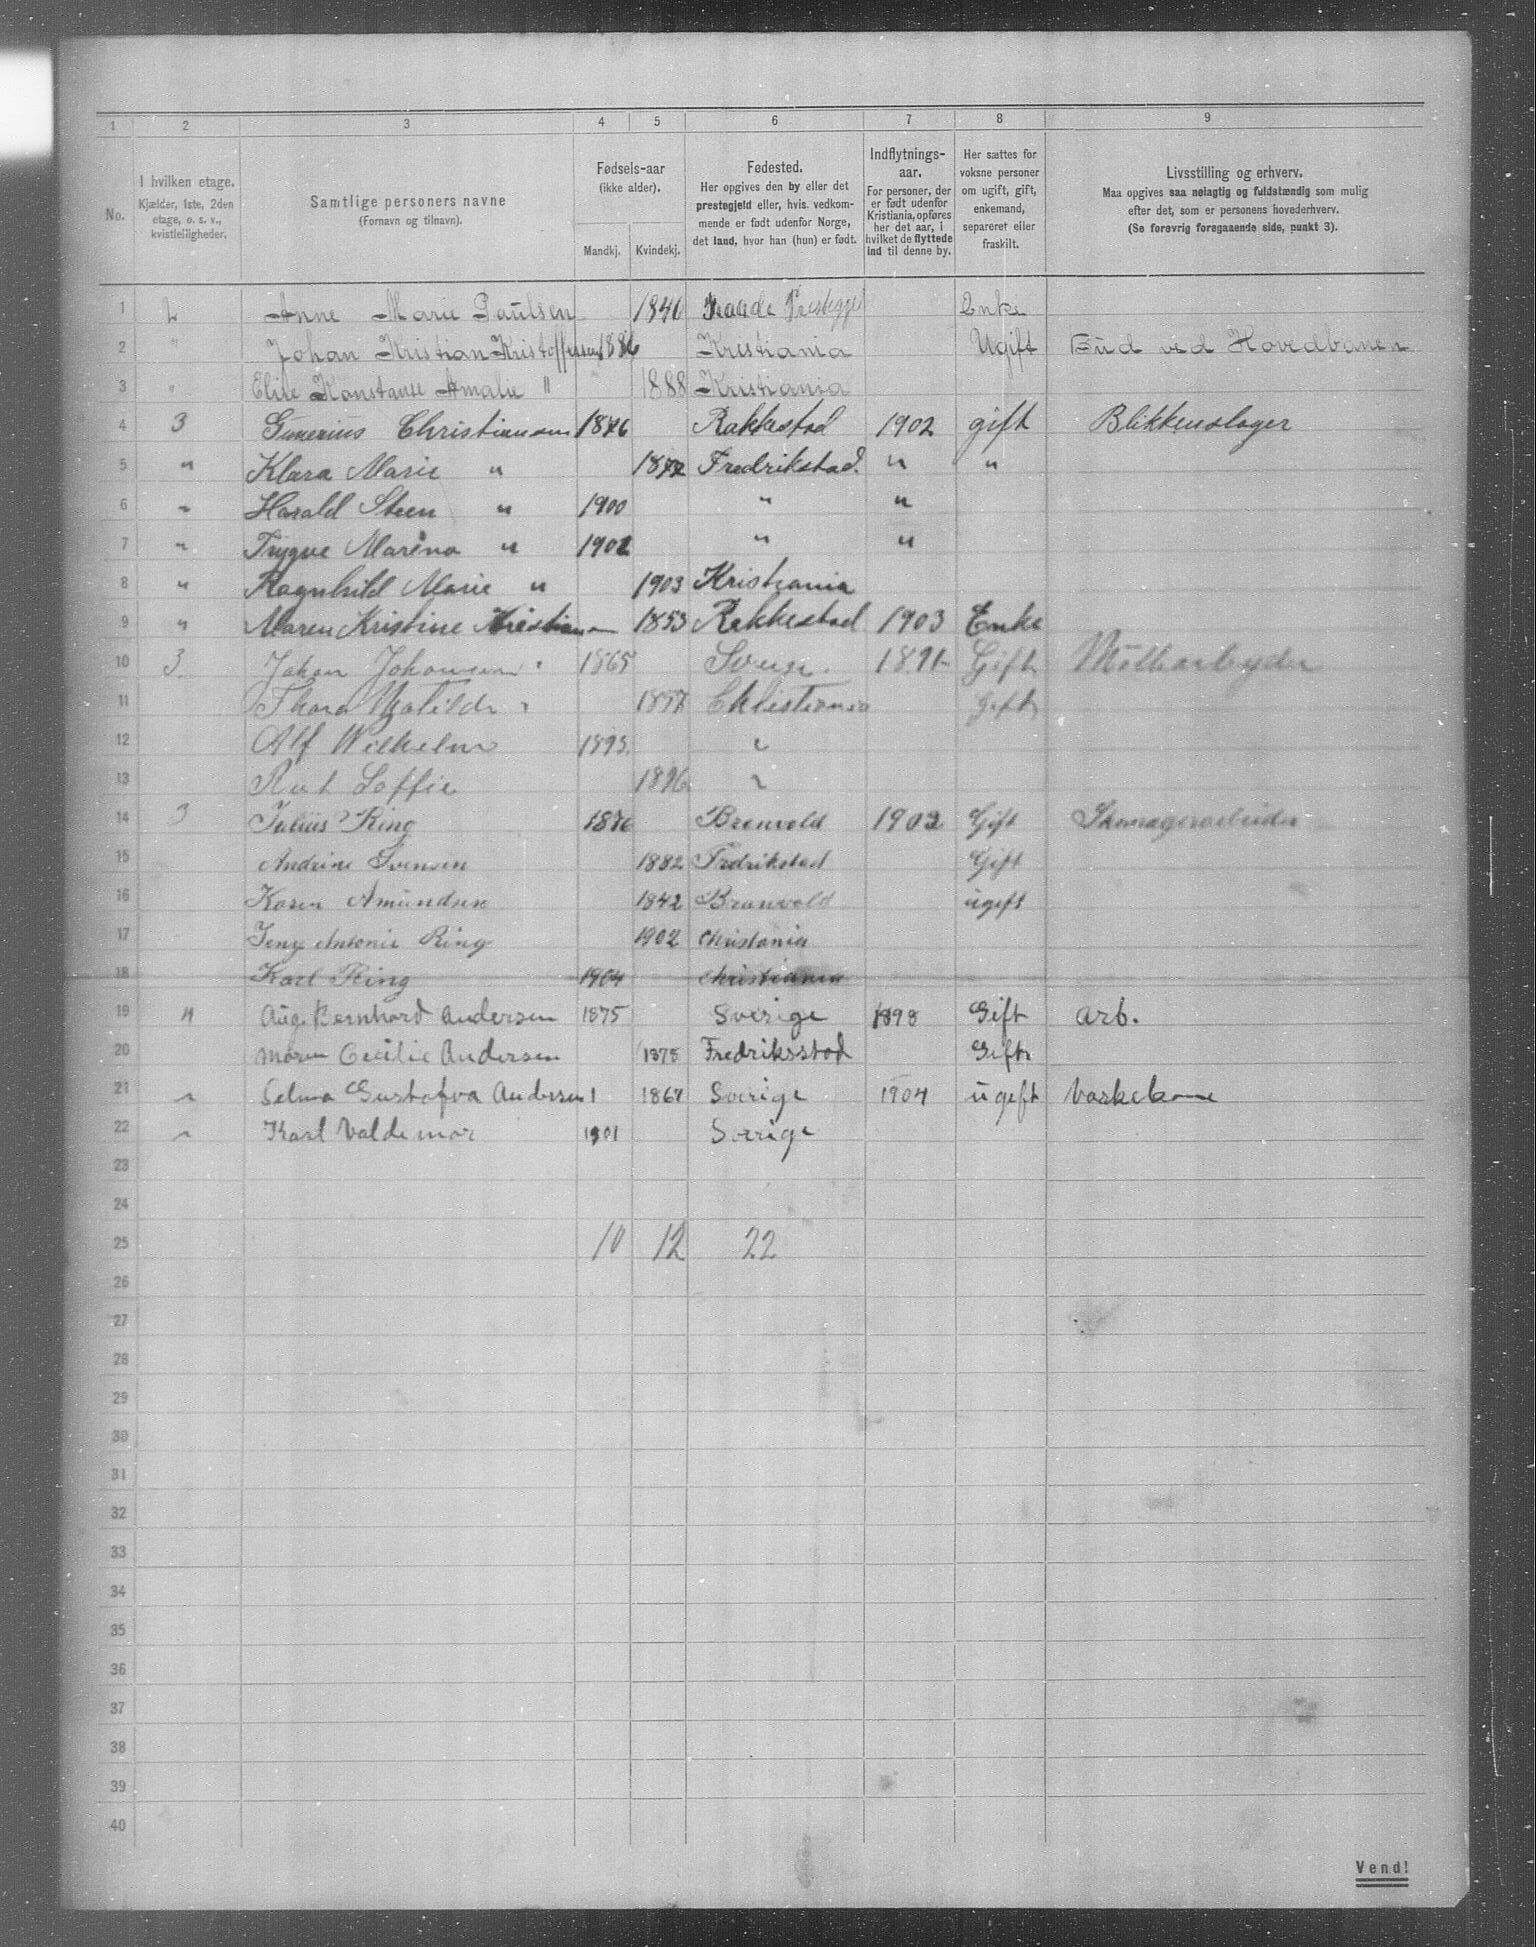 1 2 3 4 5 6 7 8 9
No.
I hvilken etage.
Kjælder, 1ste, 2den
etage, o. s. v.,
kvistleiligheder.
Samtlige personers navne
(Fornavn og tilnavn).
Fødsels-aar
(ikke alder).
Mandkj. Kvindekj.
Fødested.
Her opgives den by eller det
prestegjeld eller, hvis. vedkom-
mende er født udenfor Norge,
det land, hvor han (hun) er født.
Indflytnings-
aar.
For personer, der
er født udenfor
Kristiania, opføres
her det aar, i
hvilket de flyttede
ind til denne by.
Her sættes for
voksne personer
om ugift, gift,
enkemand,
separeret eller
fraskilt.
Livsstilling og erhverv.
Maa opgives saa nøiagtig og fuldstændig som mulig
efter det, som er personens hovederhverv.
(Se forøvrig foregaaende side, punkt 3).
1 2 Anne Marie Paulsen Enke
2 " Johan Kristian Kristoffersen 1886 Kristiania Ugift Bud ved Hovedbanen
3 " Konstanse Amalie " 1888 Kristiania
4 3 Gunerius Christiansen 1876 Rakkestad 1902 gift Blikkenslager
5 " Klara Marie " Fredrikstad. " "
6 " Harald Steen " 1900 " "
7 " Trygve " 1902 " "
8 " Ragnhild Marie " 1903 Kristiania
9 " Maren Kristine 1853 Rakkestad 1903 Enke
10 3. Johan Johansen " 1865 1891 Gift
11 Thora Matilde " Christiania Gift
12 Alf Wilhelm 1893. "
13 Rut Soffie 1896 "
14 3 Julius Ring 1876 1902 Gift
15 Andrine Svensen 1882 Fredrikstad Gift
16 Karen Amundsen 1842 ugift
17 Jeny Antonie Ring 1902 Christania
18 Karl Ring 1904 Christiania
19 4 Aug. Bernhard Andersen 1875 Sverige 1898 Gift Arb.
20 Maren Cecilie Andersen 1878 Fredriksstad Gift
21 " Selma Gustafva Andersen 1 1867 Sverige 1904 ugift Vaskekone
22 " Karl Valdemar 1901 Sverige
23
24
25 10 12 22
26
27
28
29
30
31
32
33
34
35
36
37
38
39
40
Vend!